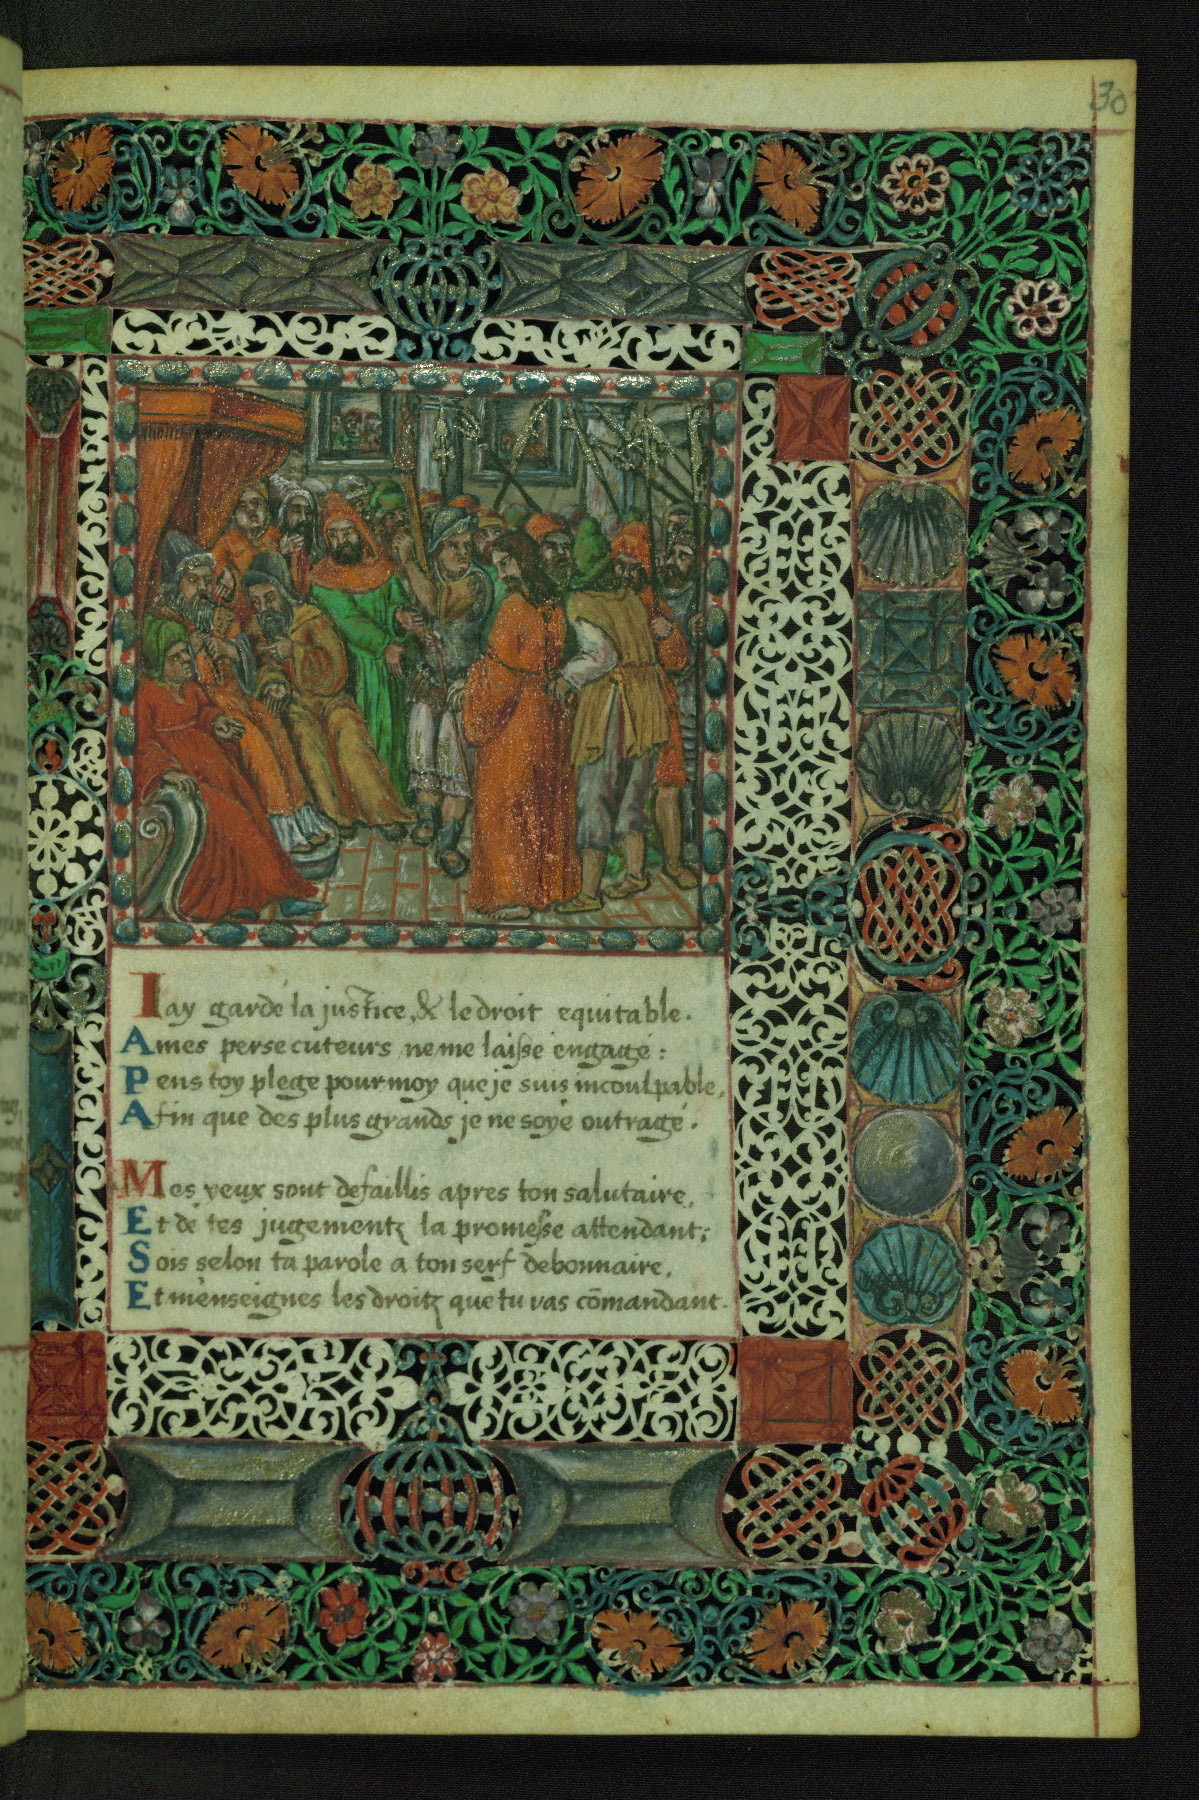 30
Iay gardé la justice, & le droit equitable.
A mes persecuteurs ne me laisse engagé:
Pens toy plege pour moy que je suis incoulpable,
Afin que des plus grands je ne soyé outragé.
Mes yeux sont defaillis apres ton salutaire,
Et de tes jugementz la promesse attendant;
Sois selon ta parole a ton serf debonnaire,
Et m'enseignes les droitz que tu vas cōmandant.